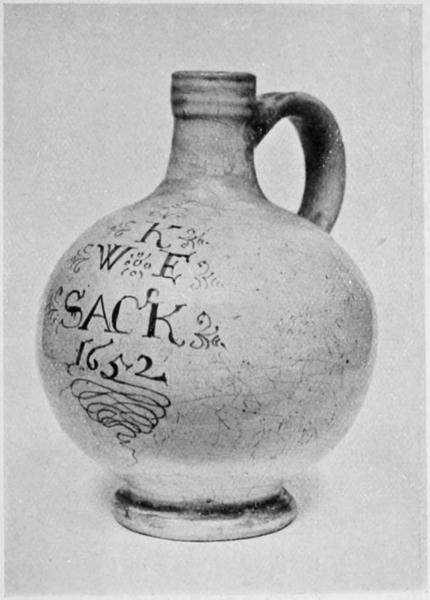 K
W E
SACK
1652